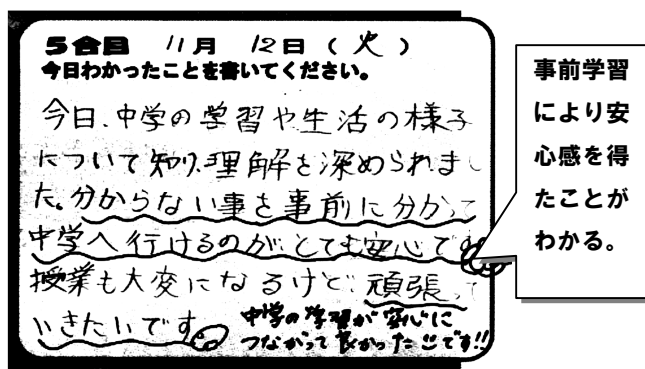 5合目 11月 12日(火)
今日わかったことを書いてください。
今日、中学の学習や生活の様子
について知り、理解を深められまし
た。分からない事を事前に分かって
中学へ行けるのがとても安心です。
授業も大変になるけど、頑張って
いきたいです。
中学の学習が安心に
つながって良かったです!!
事前学習
により安
心感を得
たことが
わかる。